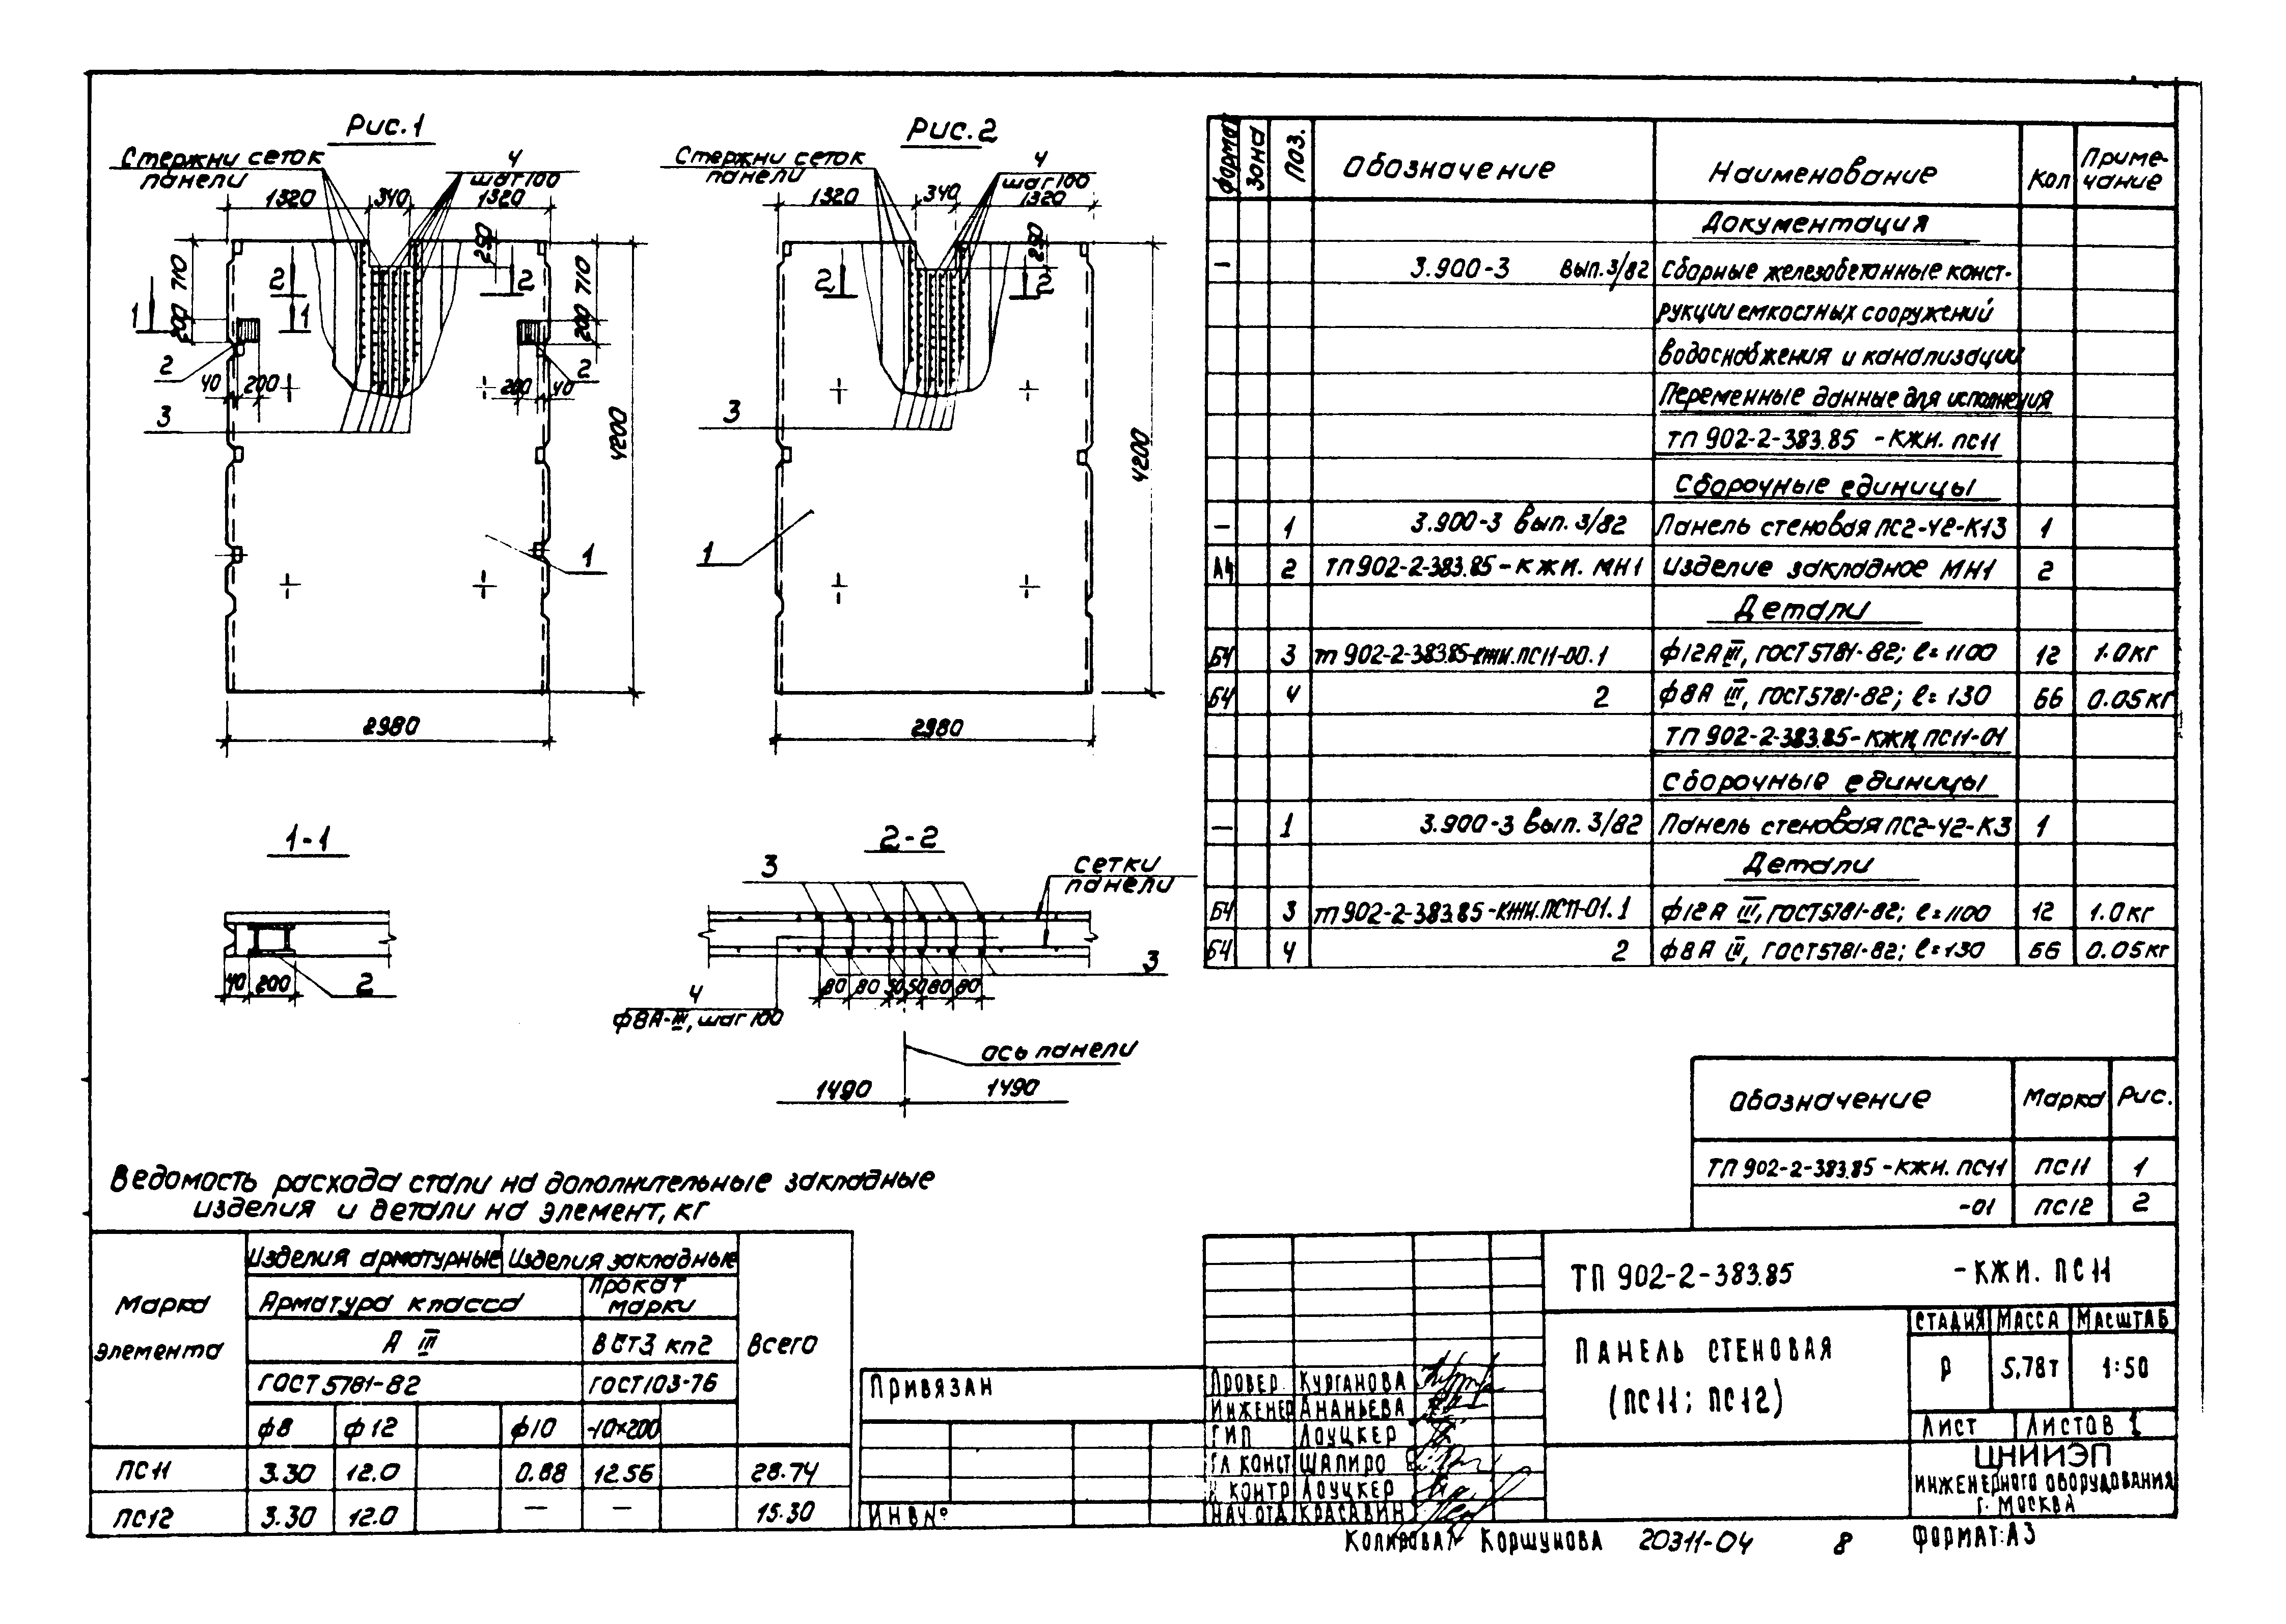 Рис. 1
Стержни сеток
панели
4
шаг 100
1320
340
1320
250
710
200
710
200
2
2
1
1
2
2
40
200
200
40
3
4200
1
2980
Рис. 2
Стержни сеток
панели
4
шаг 100
1320
340
1320
250
2
2
3
4200
1
2980
1-1
40
200
2
2-2
3
сетки
панели
3
80 80 50 50 80 80
4
ф8А-III, шаг 100
ось панели
1490
1490
Формат
Зона
Поз.
Обозначение
Наименование
Кол
Приме-
чание
Документация
— 3.900-3 Вып. 3/82 Сборные железобетонные конст-
рукции емкостных сооружений
водоснабжения и канализации
Переменные данные для исполнения
ТП 902-2-383.85 -КЖИ. ПС11
Сборочные единицы
— 1 3.900-3 Вып. 3/82 Панель стеновая ПС2-42-К13 1
А4 2 ТП 902-2-383.85-КЖИ. МН1 Изделие закладное МН1 2
Детали
БЧ 3 ТП 902-2-383.85-КЖИ.ПС11-00.1 ф12А III, ГОСТ 5781-82; ℓ=1100 12 1.0кг
БЧ 4 2 ф8А III, ГОСТ 5781-82; ℓ=130 66 0.05кг
ТП 902-2-383.85-КЖИ ПС11-01
Сборочные единицы
— 1 3.900-3 Вып. 3/82 Панель стеновая ПС2-42-К3 1
Детали
БЧ 3 ТП 902-2-383.85-КЖИ.ПС11-01.1 ф12А III, ГОСТ 5781-82; ℓ=1100 12 1.0кг
БЧ 4 2 ф8А III, ГОСТ 5781-82; ℓ=130 66 0.05кг
Обозначение Марка Рис.
ТП 902-2-383.85-КЖИ. ПС11 ПС11 1
-01 ПС12 2
Ведомость расхода стали на дополнительные закладные
изделия и детали на элемент, кг
Марка
элемента
Изделия арматурные
Изделия закладные
Арматура класса
Прокат
марки
Всего
А III
ВСт3 кп2
ГОСТ 5781-82
ГОСТ 103-76
ф8 ф12 ф10 -10×200
ПС11 3.30 12.0 0.88 12.56 28.74
ПС12 3.30 12.0 — — 15.30
Привязан
Инв №
Провер. Курганова
Инженер Ананьева
ГИП Лоуцкер
Гл конст Шапиро
Н контр Лоуцкер
Нач. отд Красавин
ТП 902-2-383.85 -КЖИ. ПС11
Панель стеновая
(ПС11; ПС12)
Стадия Масса Масштаб
Р 5,78т 1:50
Лист Листов 1
ЦНИИЭП
инженерного оборудования
г. Москва
Копировал Коршунова 20311-04 8 Формат: А3